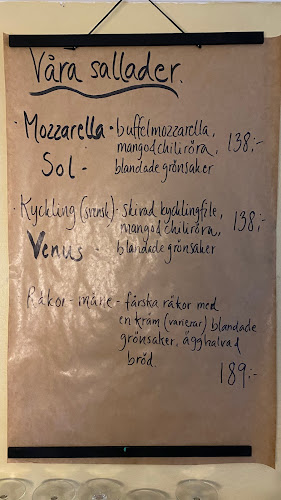 Våra sallader.
Mozzarella - buffelmozzarella,
mango & chiliröra, 138:-
Sol - blandade grönsaker
Kyckling (svensk) - skivad kycklingfilé,
mango & chiliröra, 138:-
Venus - blandade grönsaker
Räkor - måne - färska räkor med
en kräm (varierar) blandade
grönsaker, ägghalva &
bröd.
189:-